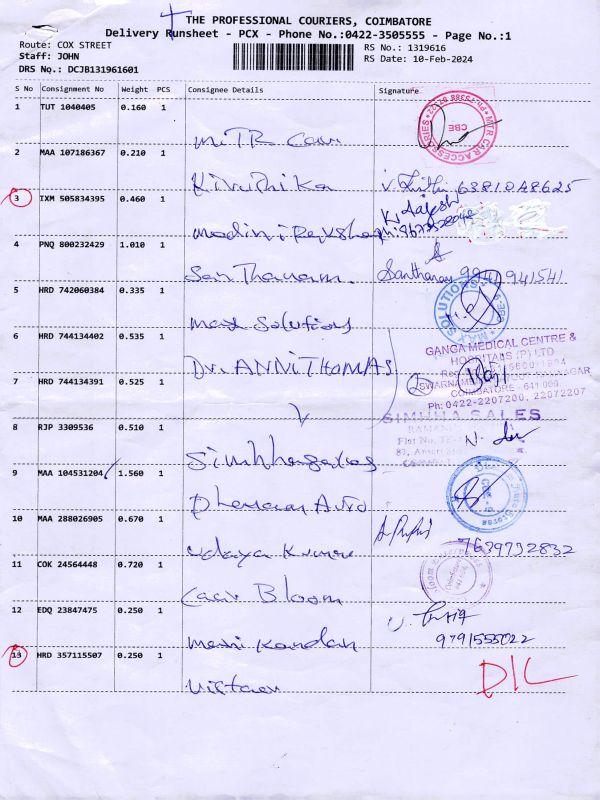 THE PROFESSIONAL COURIERS, COIMBATORE
Delivery Runsheet - PCX - Phone No.:0422-3505555 - Page No.:1
Route: COX STREET
RS No.: 1319616
Staff: JOHN
RS Date: 10-Feb-2024
DRS No.: DCJB131961601
S No Consignment No Weight PCS Consignee Details Signature
1 TUT 1040405 0.160 1
MTR CAR ACCESSARIES
CBE
2 MAA 107186367 0.210 1
Kiruthika 6381048625
3 IXM 505834395 0.460 1
K. Rajesh
4 PNQ 800232429 1.010 1
Santhanam. Santhanam 9941941541
5 HRD 742060384 0.335 1
Max Solutions
MAX SOLUTIONS
6 HRD 744134402 0.535 1
GANGA MEDICAL CENTRE &
HOSPITALS (P) LTD
Dr. ANNI THOMAS
7 HRD 744134391 0.525 1
COIMBATORE - 641 009
Ph: 0422-2207200, 22072207
SIMHHA SALES
8 RJP 3309536 0.510 1
9 MAA 104531204 1.560 1
Dhanam Auto
10 MAA 288026905 0.670 1
Udaya Kumar 7639792832
11 COK 24564448 0.720 1
Caar Bloom
12 EDQ 23847475 0.250 1
Mani Kandan 9791555022
13 HRD 357115507 0.250 1
D/L